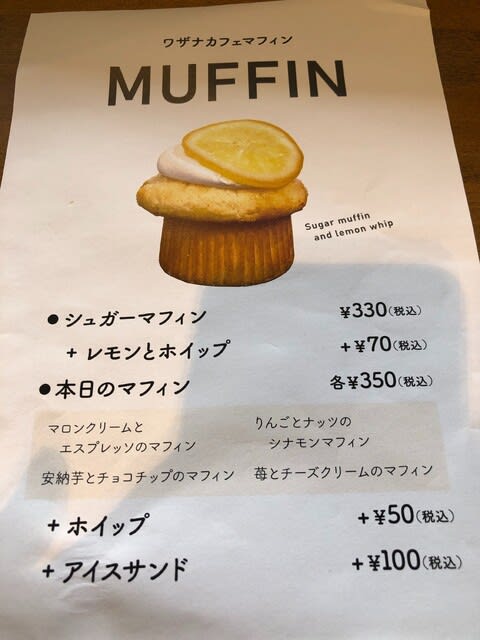 ワザナカフェマフィン
MUFFIN
Sugar muffin
and lemon whip
●シュガーマフィン ¥330(税込)
+ レモンとホイップ +¥70(税込)
●本日のマフィン 各¥350(税込)
マロンクリームと
エスプレッソのマフィン
りんごとナッツの
シナモンマフィン
安納芋とチョコチップのマフィン
苺とチーズクリームのマフィン
+ ホイップ +¥50(税込)
+ アイスサンド +¥100(税込)